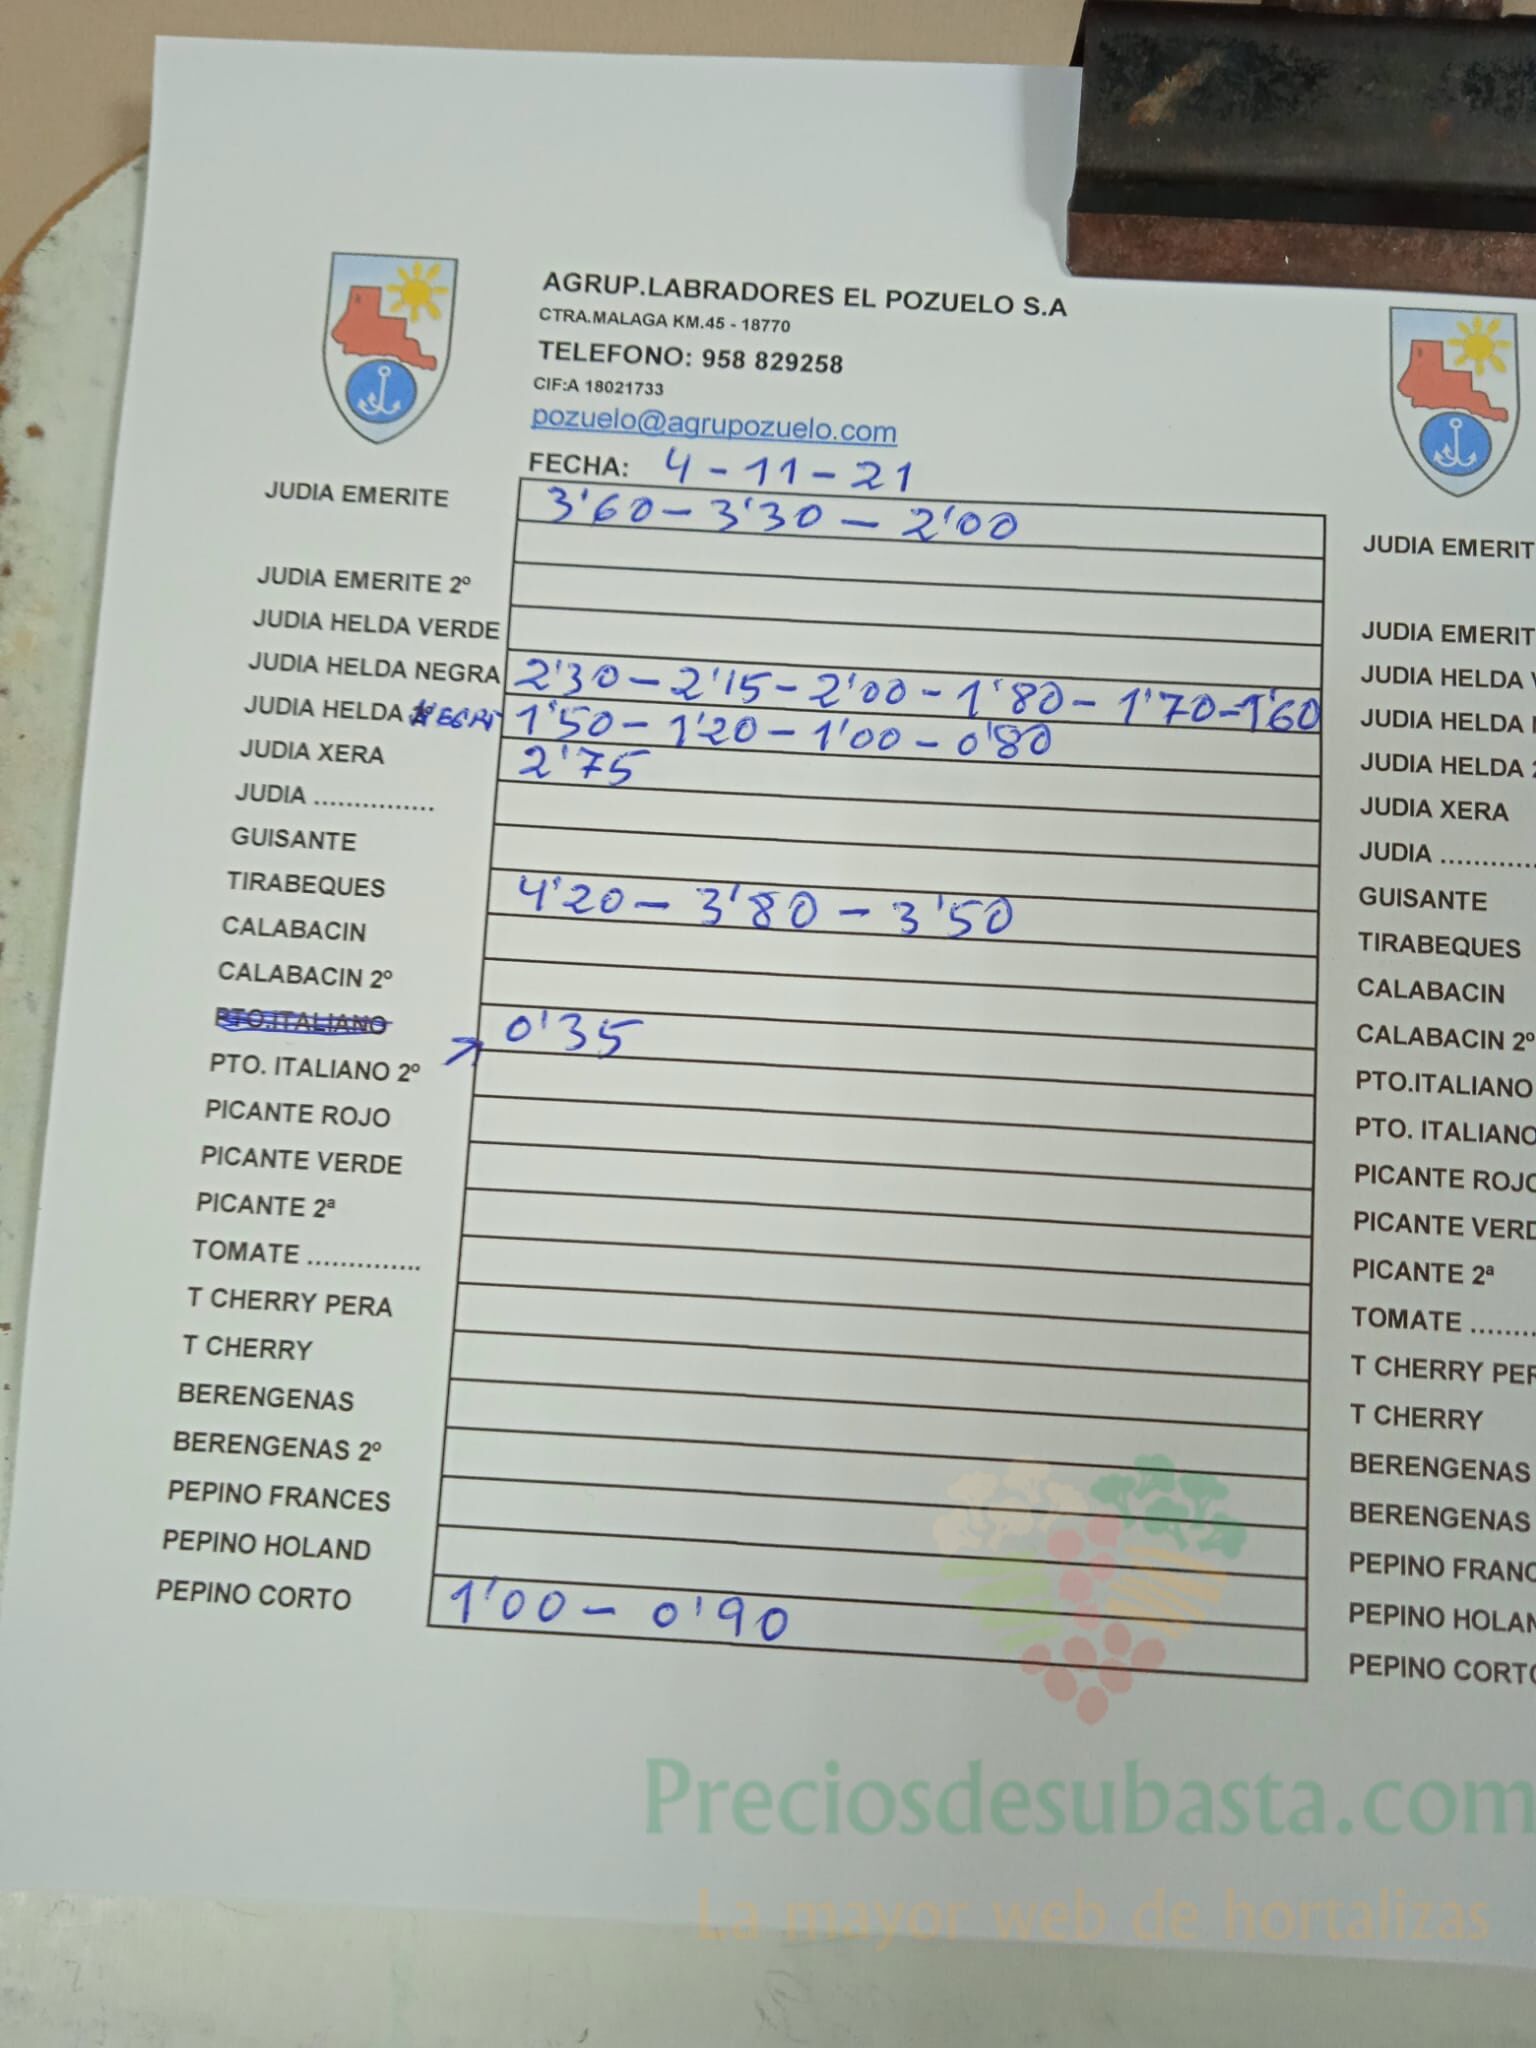 AGRUP.LABRADORES EL POZUELO S.A
CTRA.MALAGA KM.45 - 18770
TELEFONO: 958 829258
CIF:A 18021733
pozuelo@agrupozuelo.com
FECHA: 4-11-21
JUDIA EMERITE 3'60 - 3'30 - 2'00
JUDIA EMERITE 2º
JUDIA HELDA VERDE
JUDIA HELDA NEGRA 2'30 - 2'15 - 2'00 - 1'80 - 1'70 - 1'60
JUDIA HELDA 1'50 - 1'20 - 1'00 - 0'80
JUDIA XERA 2'75
JUDIA ...............
GUISANTE
TIRABEQUES 4'20 - 3'80 - 3'50
CALABACIN
CALABACIN 2º
PTO.ITALIANO 0'35
PTO. ITALIANO 2º
PICANTE ROJO
PICANTE VERDE
PICANTE 2ª
TOMATE ..............
T CHERRY PERA
T CHERRY
BERENGENAS
BERENGENAS 2º
PEPINO FRANCES
PEPINO HOLAND
PEPINO CORTO 1'00 - 0'90
JUDIA EMERIT
JUDIA EMERIT
JUDIA HELDA V
JUDIA HELDA
JUDIA HELDA 2
JUDIA XERA
JUDIA ............
GUISANTE
TIRABEQUES
CALABACIN
CALABACIN 2º
PTO.ITALIANO
PTO. ITALIANO
PICANTE ROJO
PICANTE VERD
PICANTE 2ª
TOMATE ........
T CHERRY PER
T CHERRY
BERENGENAS
BERENGENAS
PEPINO FRANC
PEPINO HOLAN
PEPINO CORTO
Preciosdesubasta.com
La mayor web de hortalizas